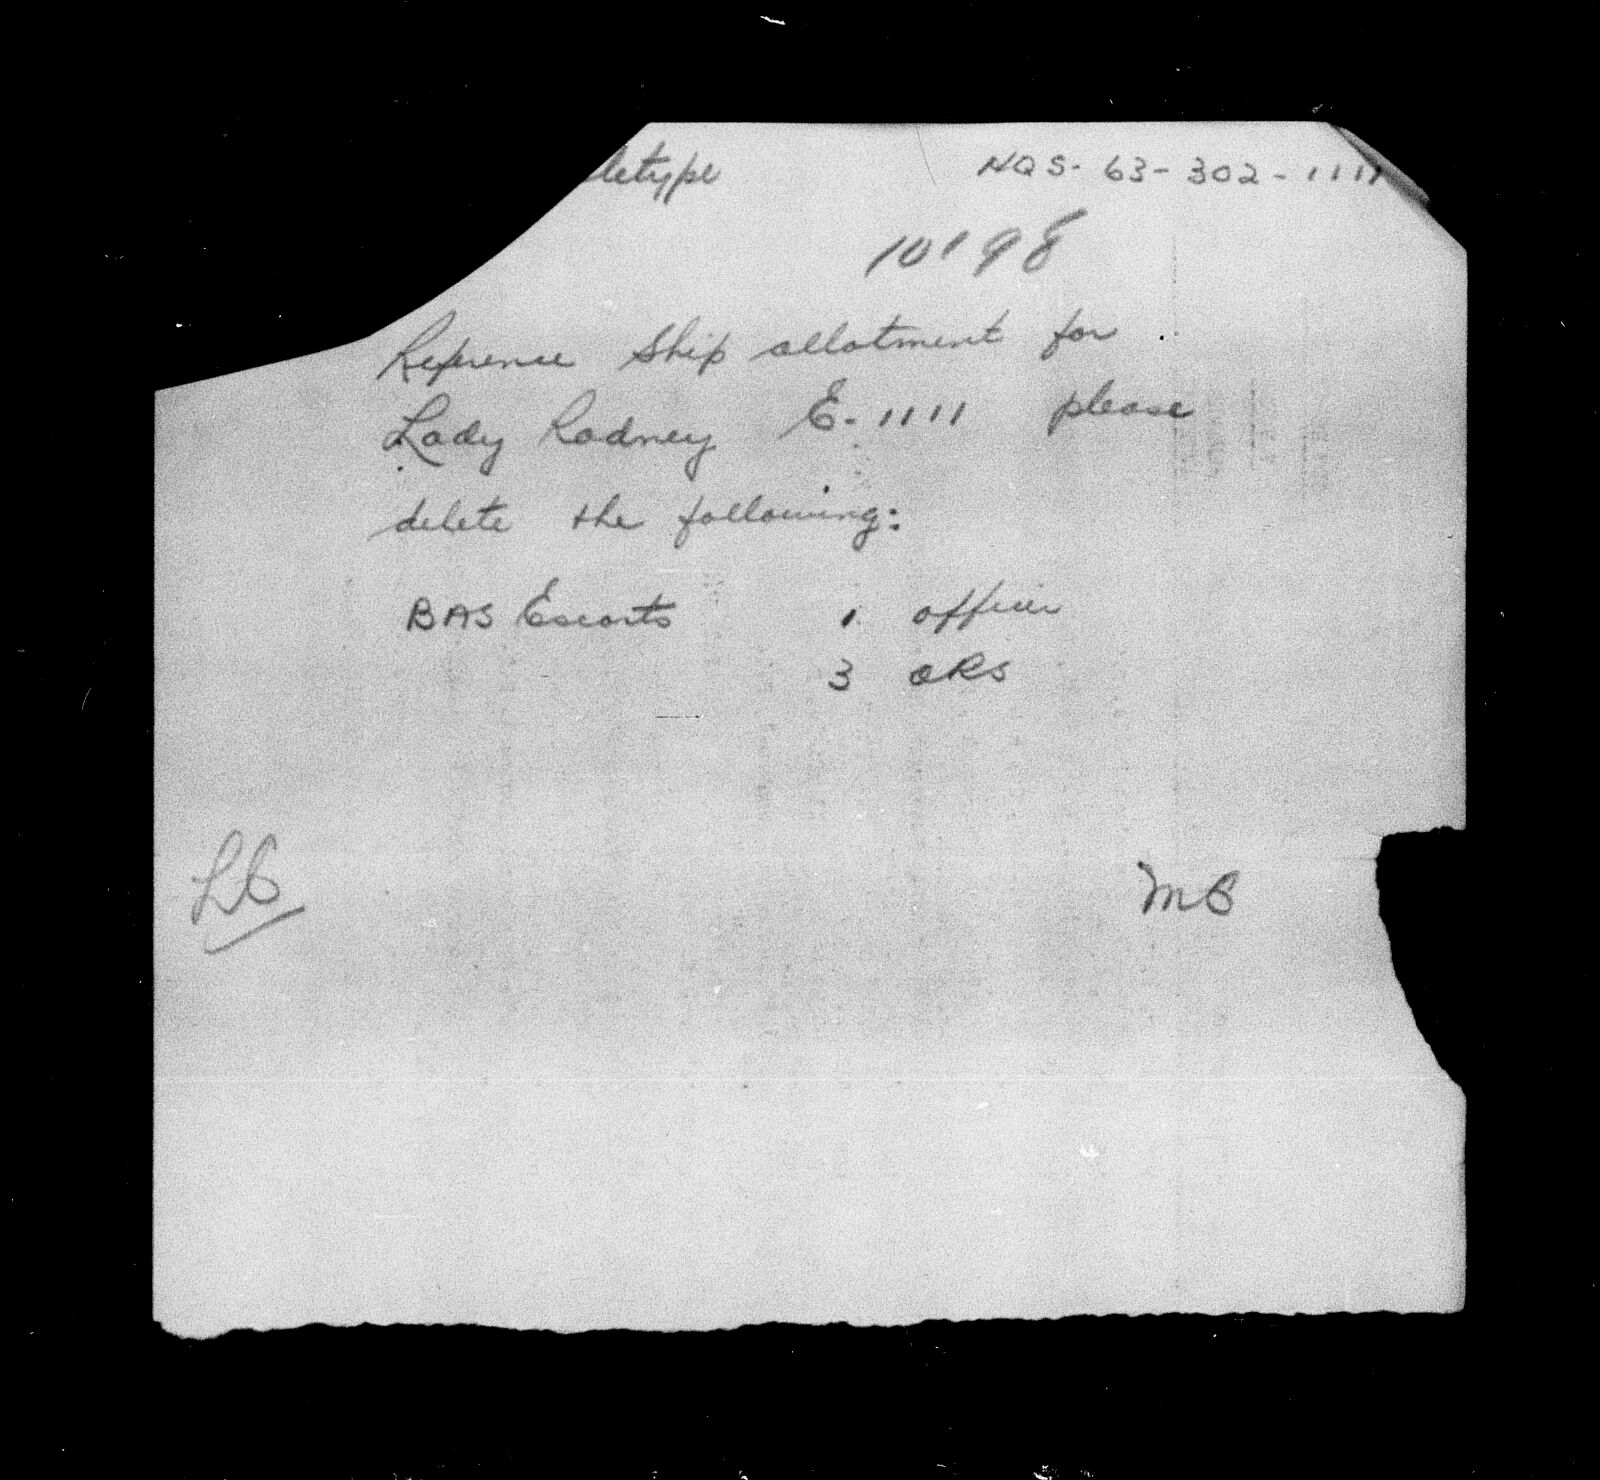 letype HQS-63-302-1111
10198
Reference Ship allotment for
Lady Rodney E-1111 please
delete the following:
BAS Escorts 1 officer
3 ORS
MB